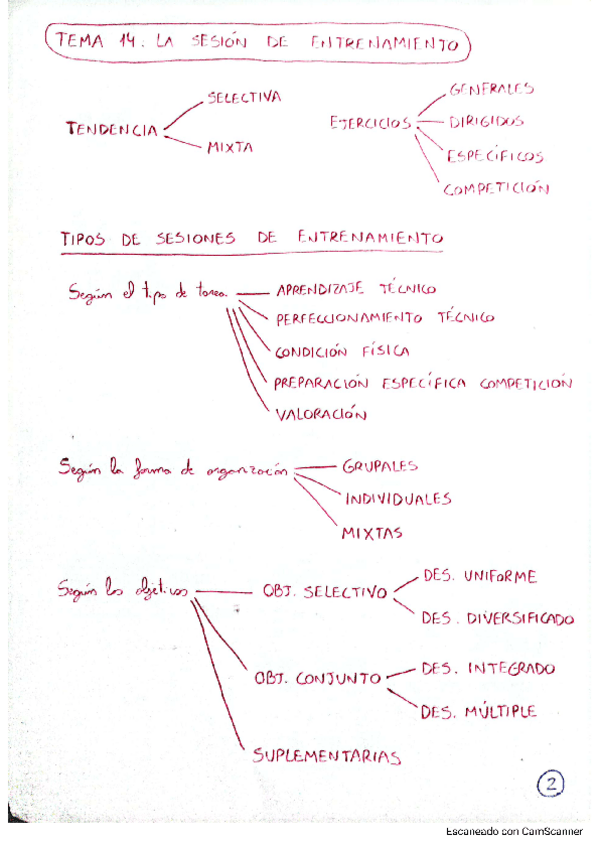 TEMA 14. LA SESIÓN DE ENTRENAMIENTO
TENDENCIA
SELECTIVA
MIXTA
EJERCICIOS
GENERALES
DIRIGIDOS
ESPECÍFICOS
COMPETICIÓN
TIPOS DE SESIONES DE ENTRENAMIENTO
Según el tipo de tarea
APRENDIZAJE TÉCNICO
PERFECCIONAMIENTO TÉCNICO
CONDICIÓN FÍSICA
PREPARACIÓN ESPECÍFICA COMPETICIÓN
VALORACIÓN
Según la forma de organización
GRUPALES
INDIVIDUALES
MIXTAS
Según los objetivos
OBJ. SELECTIVO
DES. UNIFORME
DES. DIVERSIFICADO
OBJ. CONJUNTO
DES. INTEGRADO
DES. MÚLTIPLE
SUPLEMENTARIAS
2
Escaneado con CamScanner